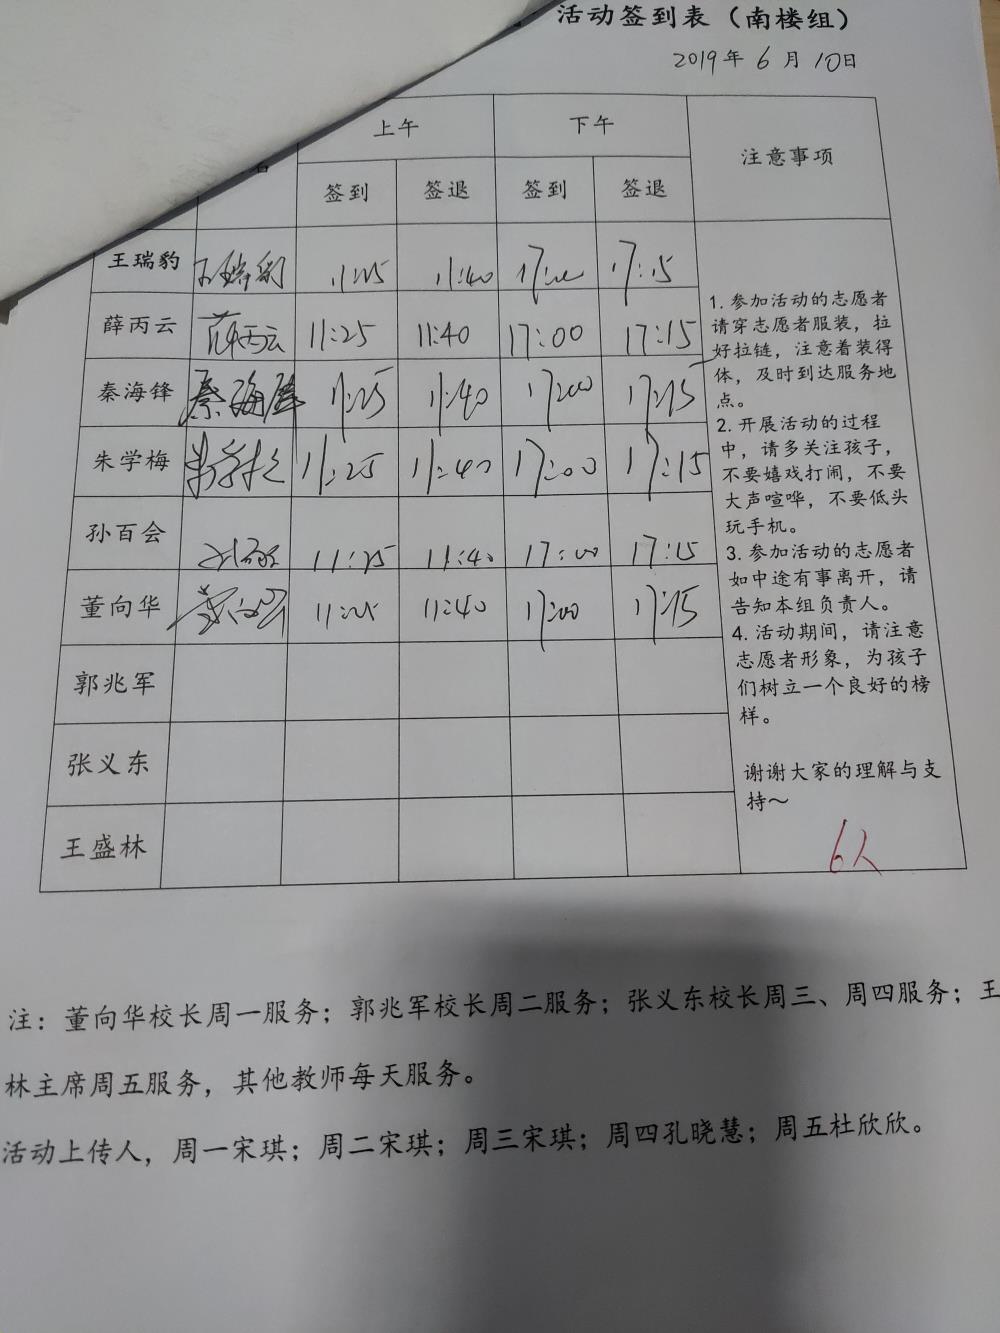 活动签到表（南楼组）
2019年6月10日
上午 下午 注意事项
名 签到 签退 签到 签退
王瑞豹 王瑞豹 11:25 11:40 17:00 17:15
薛丙云 薛丙云 11:25 11:40 17:00 17:15
秦海锋 秦海锋 11:25 11:40 17:00 17:15
朱学梅 朱学梅 11:25 11:40 17:00 17:15
孙百会 11:25 11:40 17:00 17:15
董向华 董向华 11:25 11:40 17:00 17:15
郭兆军
张义东
王盛林
1. 参加活动的志愿者
请穿志愿者服装，拉
好拉链，注意着装得
体，及时到达服务地
点。
2. 开展活动的过程
中，请多关注孩子，
不要嬉戏打闹，不要
大声喧哗，不要低头
玩手机。
3. 参加活动的志愿者
如中途有事离开，请
告知本组负责人。
4. 活动期间，请注意
志愿者形象，为孩子
们树立一个良好的榜
样。
谢谢大家的理解与支
持～
6人
注：董向华校长周一服务；郭兆军校长周二服务；张义东校长周三、周四服务；王
林主席周五服务，其他教师每天服务。
活动上传人，周一宋琪；周二宋琪；周三宋琪；周四孔晓慧；周五杜欣欣。